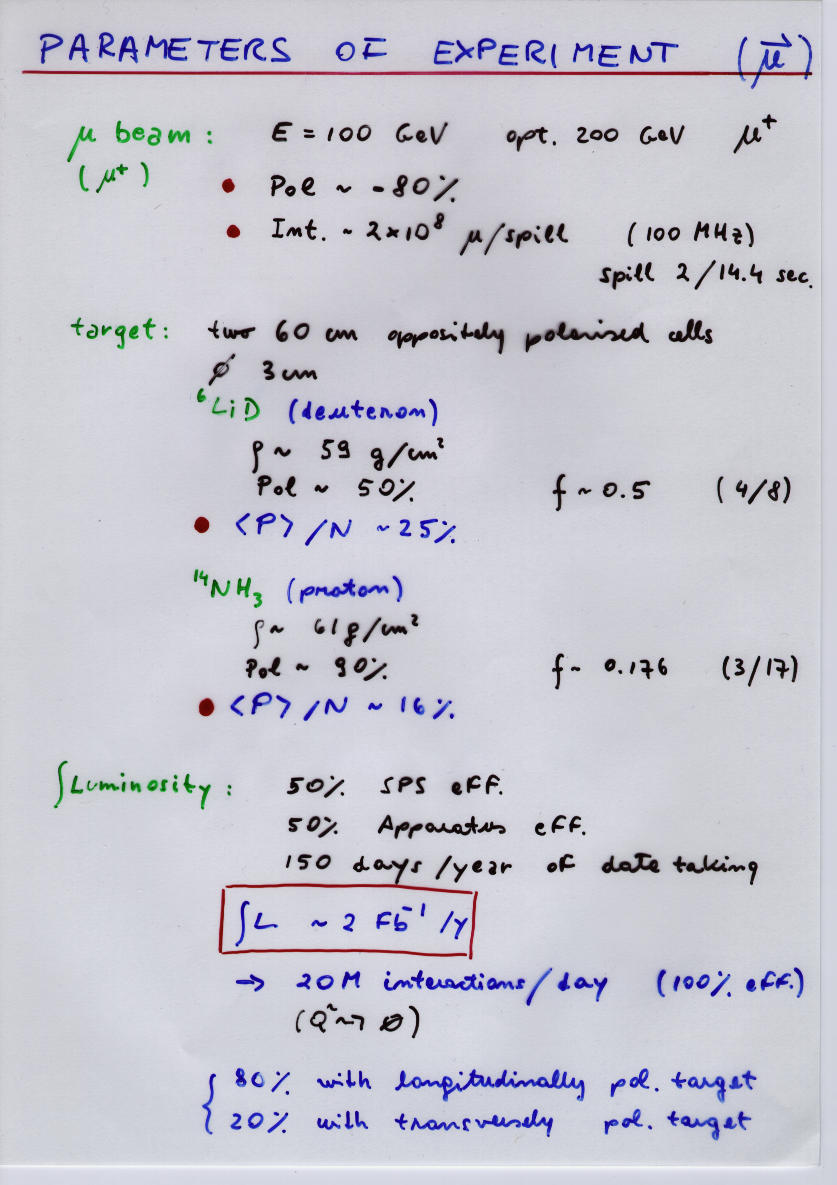 PARAMETERS OF EXPERIMENT (μ⃗)
μ beam: E = 100 GeV opt. 200 GeV μ⁺
(μ⁺) • Pol ~ -80%
• Int. ~ 2×10⁸ μ/spill (100 MHz)
spill 2/14.4 sec.
target: two 60 cm oppositely polarised cells
ϕ 3 cm
⁶LiD (deuteron)
ρ ~ 59 g/cm²
Pol ~ 50% f ~ 0.5 (4/8)
• <P>/N ~ 25%
¹⁴NH₃ (proton)
ρ ~ 61 g/cm²
Pol ~ 90% f ~ 0.176 (3/17)
• <P>/N ~ 16%
∫Luminosity: 50% SPS eff.
50% Apparatus eff.
150 days/year of date taking
∫L ~ 2 Fb⁻¹/y
→ 20M interactions/day (100% eff.)
(Q² → 0)
80% with longitudinally pol. target
20% with transversely pol. target